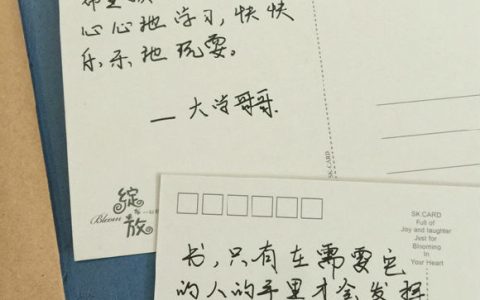 心心地学习，快快
乐乐地玩耍。
— 大学哥哥
SK.CARD
绽放
Bloom
SK.CARD
Full of
Joy and laughter
Just for
Blooming
In
Your Heart
书，只有在需要它
的人的手里才会发挥